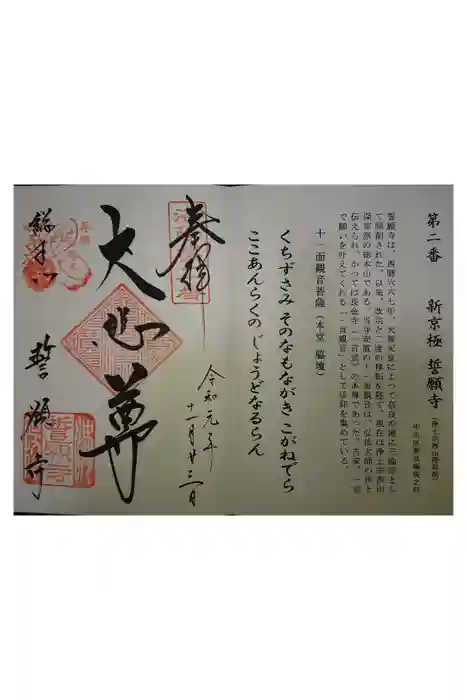 第二番 新京極 誓願寺(浄土宗西山深草派)
中京区新京極桜之町
誓願寺は、西暦六六七年、天智天皇によって奈良の地に三論宗とし
て開創された。以来、改宗と一度の移転を経て、現在は浄土宗西山
深草派の総本山である。当寺安置の十一面観音は、弘法大師の作と
伝えられ、かつては長金寺(一言堂)の本尊であった。古来、一言
で願いを叶えてくれる「一言観音」として信仰を集めている。
十一面観音菩薩(本堂 脇壇)
くちずさみ そのなもながき こがねでら
ここあんらくの じょうどなるらん
奉拝
令和元年
十一月廿三日
大悲尊
総本山
誓願寺